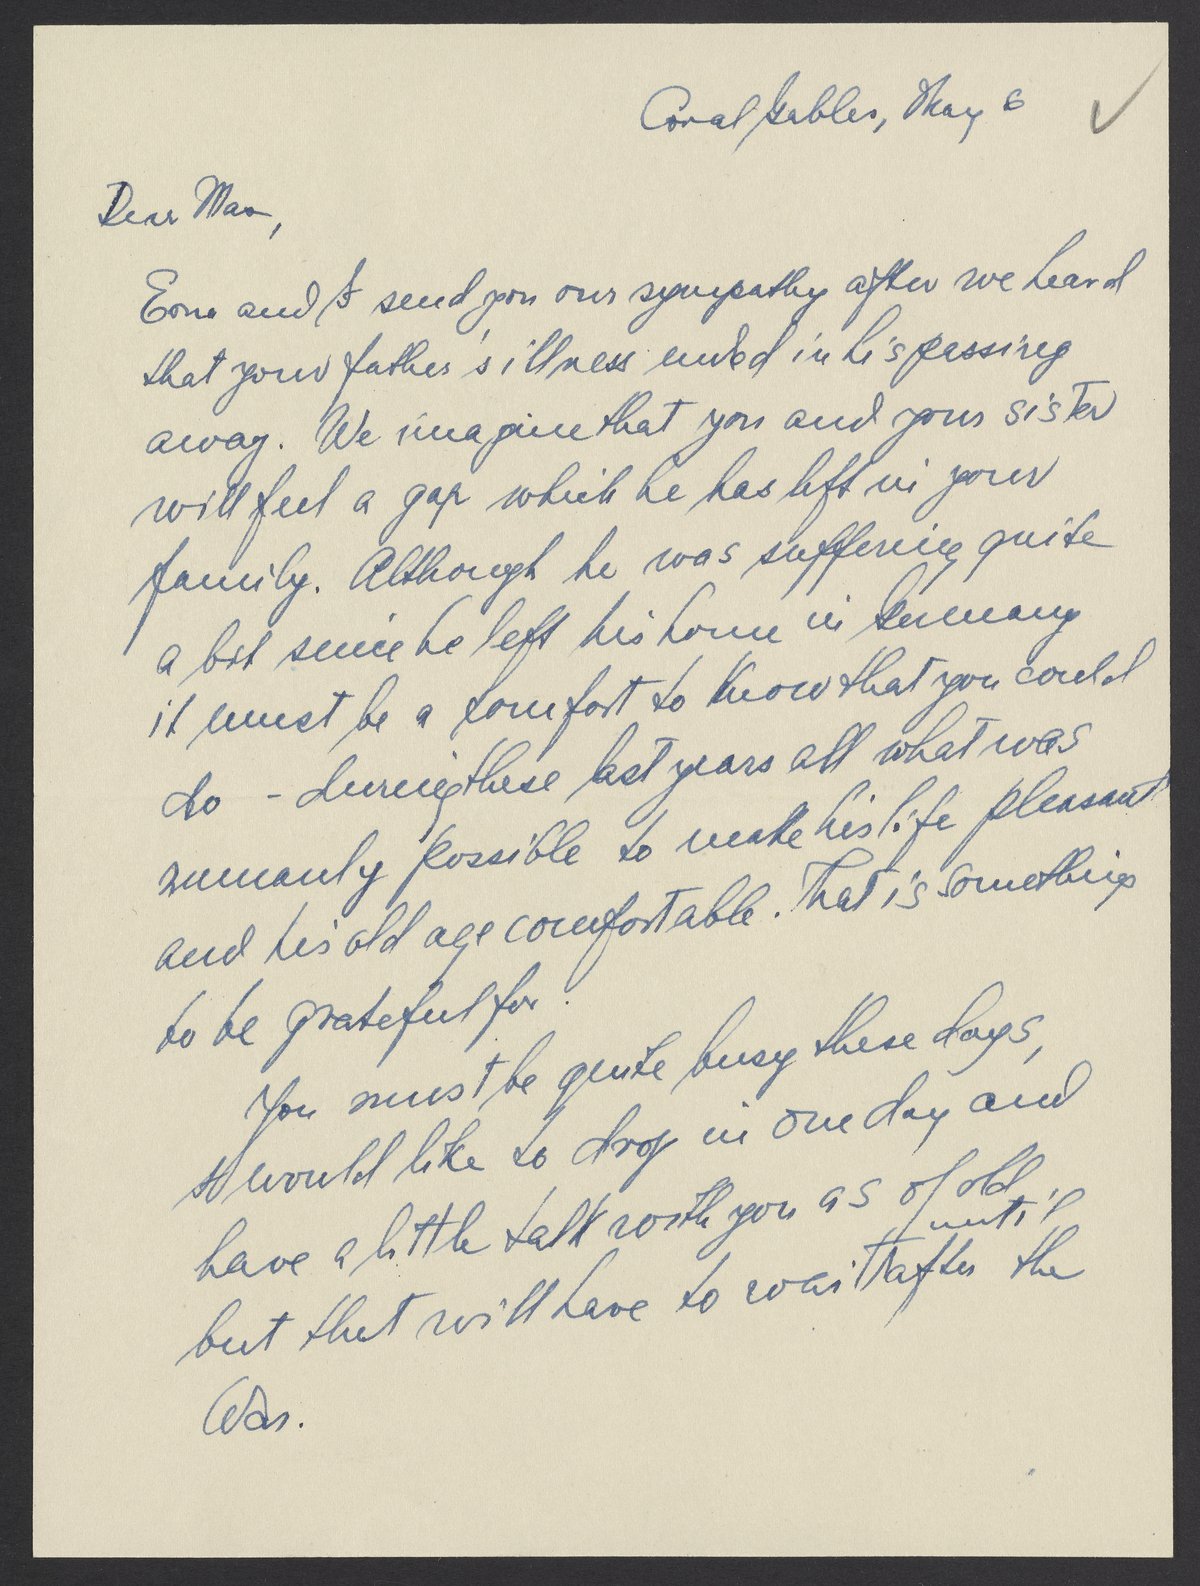 Coral Gables, May 6
Dear Max,
Erna and I send you our sympathy after we heard
that your father's illness ended in his passing
away. We imagine that you and your sister
will feel a gap which he has left in your
family. Although he was suffering quite
a bit since he left his home in Germany
it must be a comfort to know that you could
do - during these last years all what was
humanly possible to make his life pleasant
and his old age comfortable. That is something
to be grateful for.
You must be quite busy these days,
would like to drop in one day and
have a little talk with you as of old,
until
but that will have to wait after the
War.